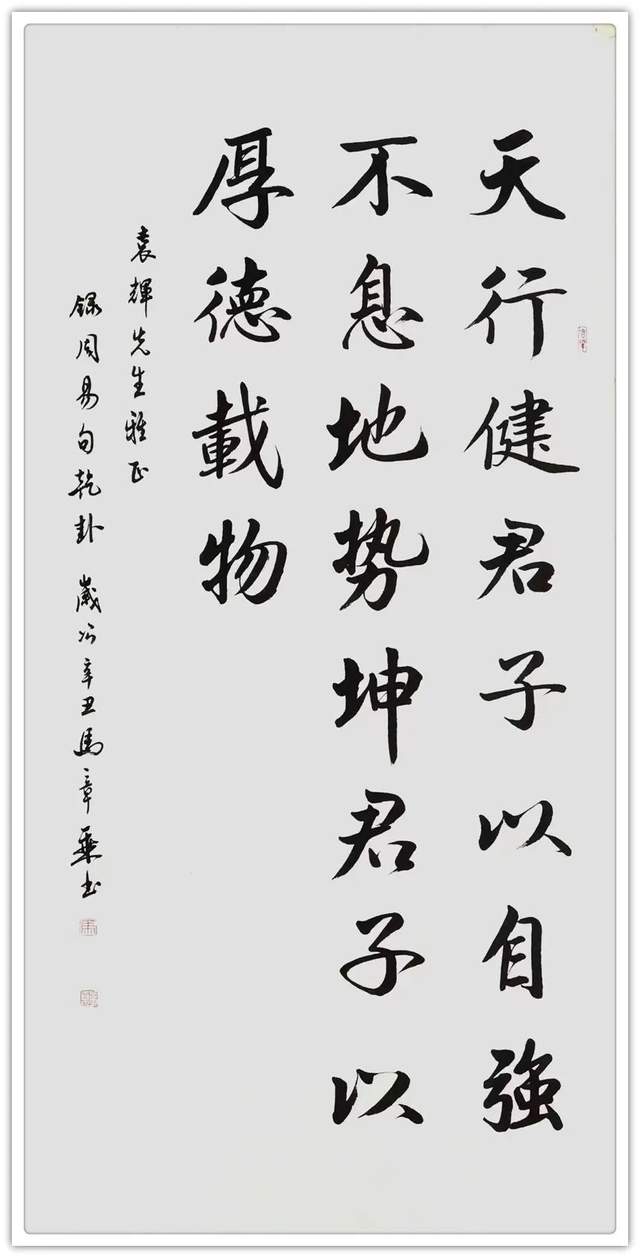 天行健君子以自強
不息地势坤君子以
厚德載物
袁輝先生雅正
録周易句乾卦歲次辛丑馬章乗书